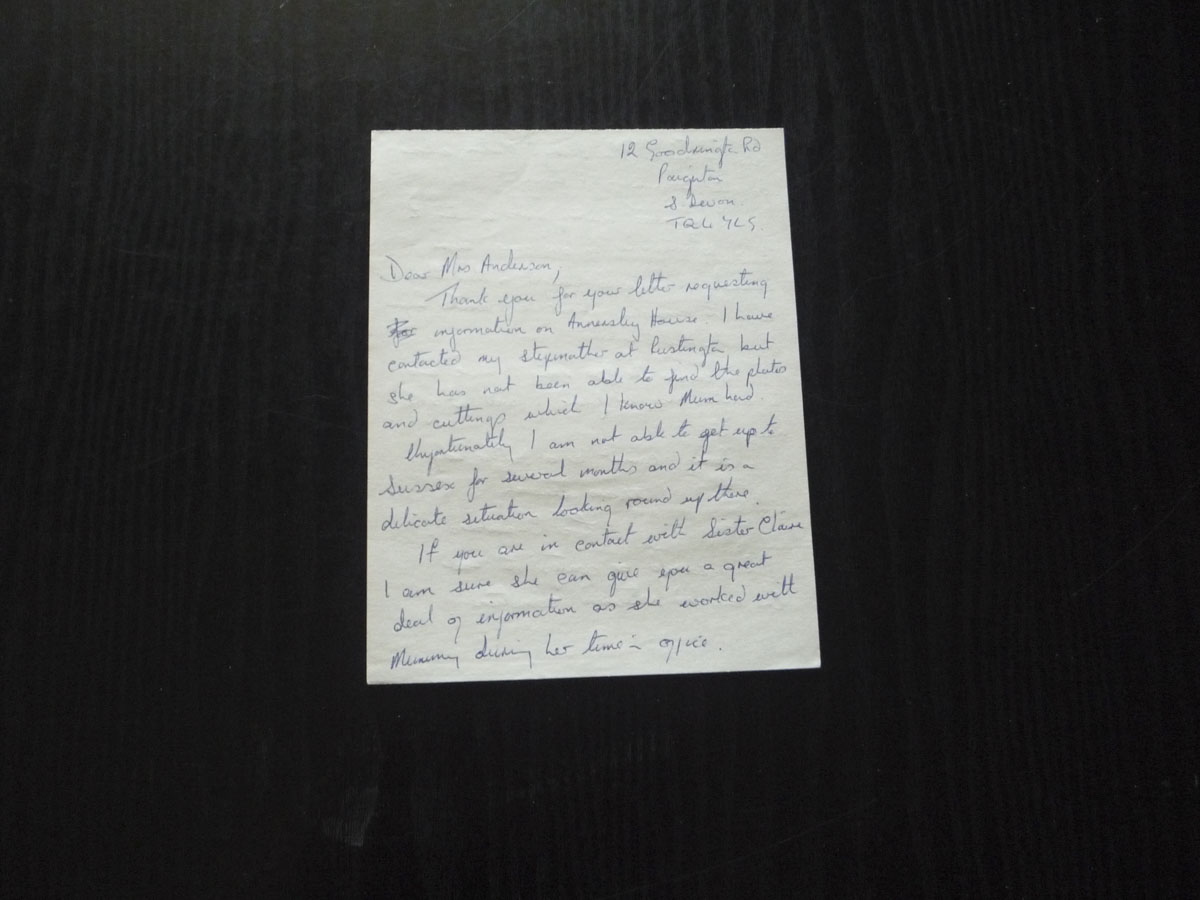 12 Goodrington Rd
Paignton
S. Devon.
TQ4 7LS.
Dear Mrs Anderson,
Thank you for your letter requesting
information on Annersley House. I have
contacted my stepmother at Rustington but
she has not been able to find the photos
and cuttings which I know Mum had.
Unfortunately I am not able to get up to
Sussex for several months and it is a
delicate situation looking round up there.
If you are in contact with Sister Claire
I am sure she can give you a great
deal of information as she worked with
Mummy during her time in office.